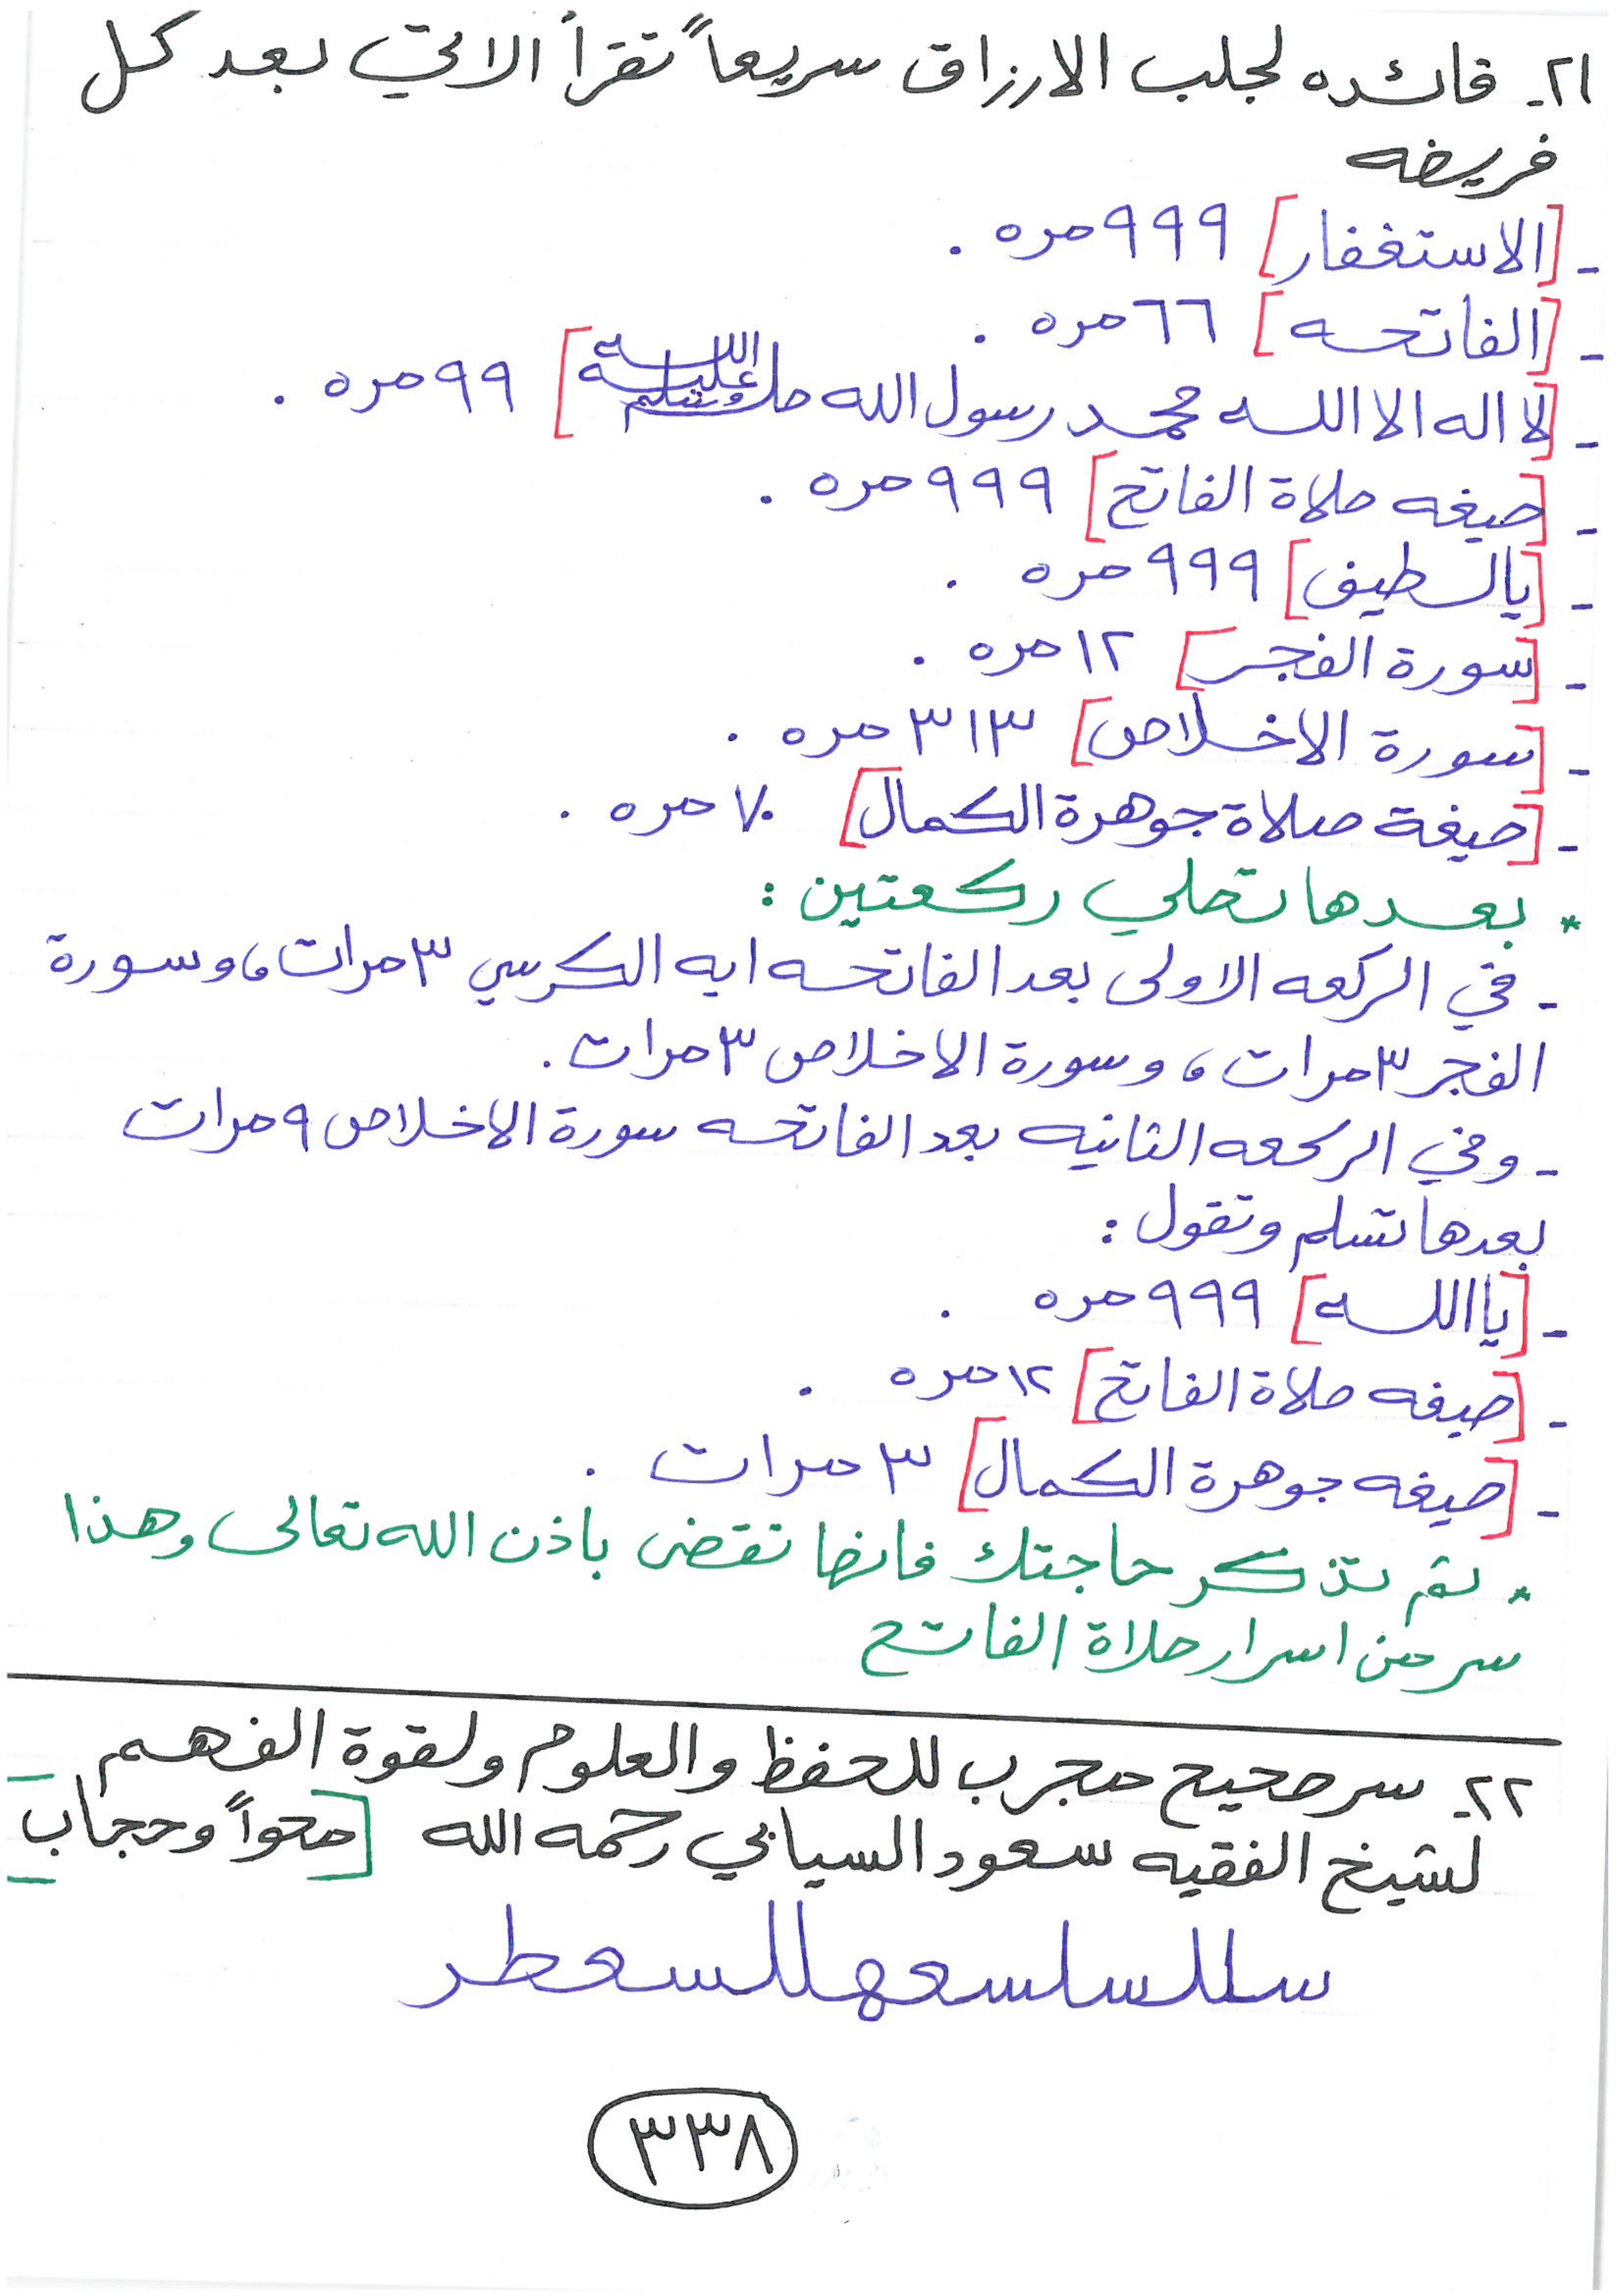 ٢١- فائده لجلب الارزاق سريعاً تقرأ الاتي بعد كل
فريضه
- [الاستغفار] ٩٩٩ مره .
- [الفاتحه] ٦٦ مره .
- [لا اله الا الله محمد رسول الله صلى الله عليه وسلم] ٩٩ مره .
- [صيغه صلاة الفاتح] ٩٩٩ مره .
- [يالطيف] ٩٩٩ مره .
- [سورة الفجر] ١٢ مره .
- [سورة الاخلاص] ٣١٣ مره .
- [صيغة صلاة جوهرة الكمال] ٧٠ مره .
* بعدها تصلي ركعتين :
- في الركعه الاولى بعد الفاتحه ايه الكرسي ٣ مرات، وسورة
الفجر ٣ مرات، وسورة الاخلاص ٣ مرات.
- وفي الركعه الثانيه بعد الفاتحه سورة الاخلاص ٩ مرات
بعدها تسلم وتقول :
- [ياالله] ٩٩٩ مره .
- [صيغه صلاة الفاتح] ١٢ مره .
- [صيغه جوهرة الكمال] ٣ مرات .
* ثم تذكر حاجتك فانها تقضى باذن الله تعالى وهذا
سر من اسرار صلاة الفاتح
٢٢- سر صحيح مجرب للحفظ والعلوم ولقوة الفهم
لشيخ الفقيه سعود السيابي رحمه الله [محواً وحجاب]
٣٣٨